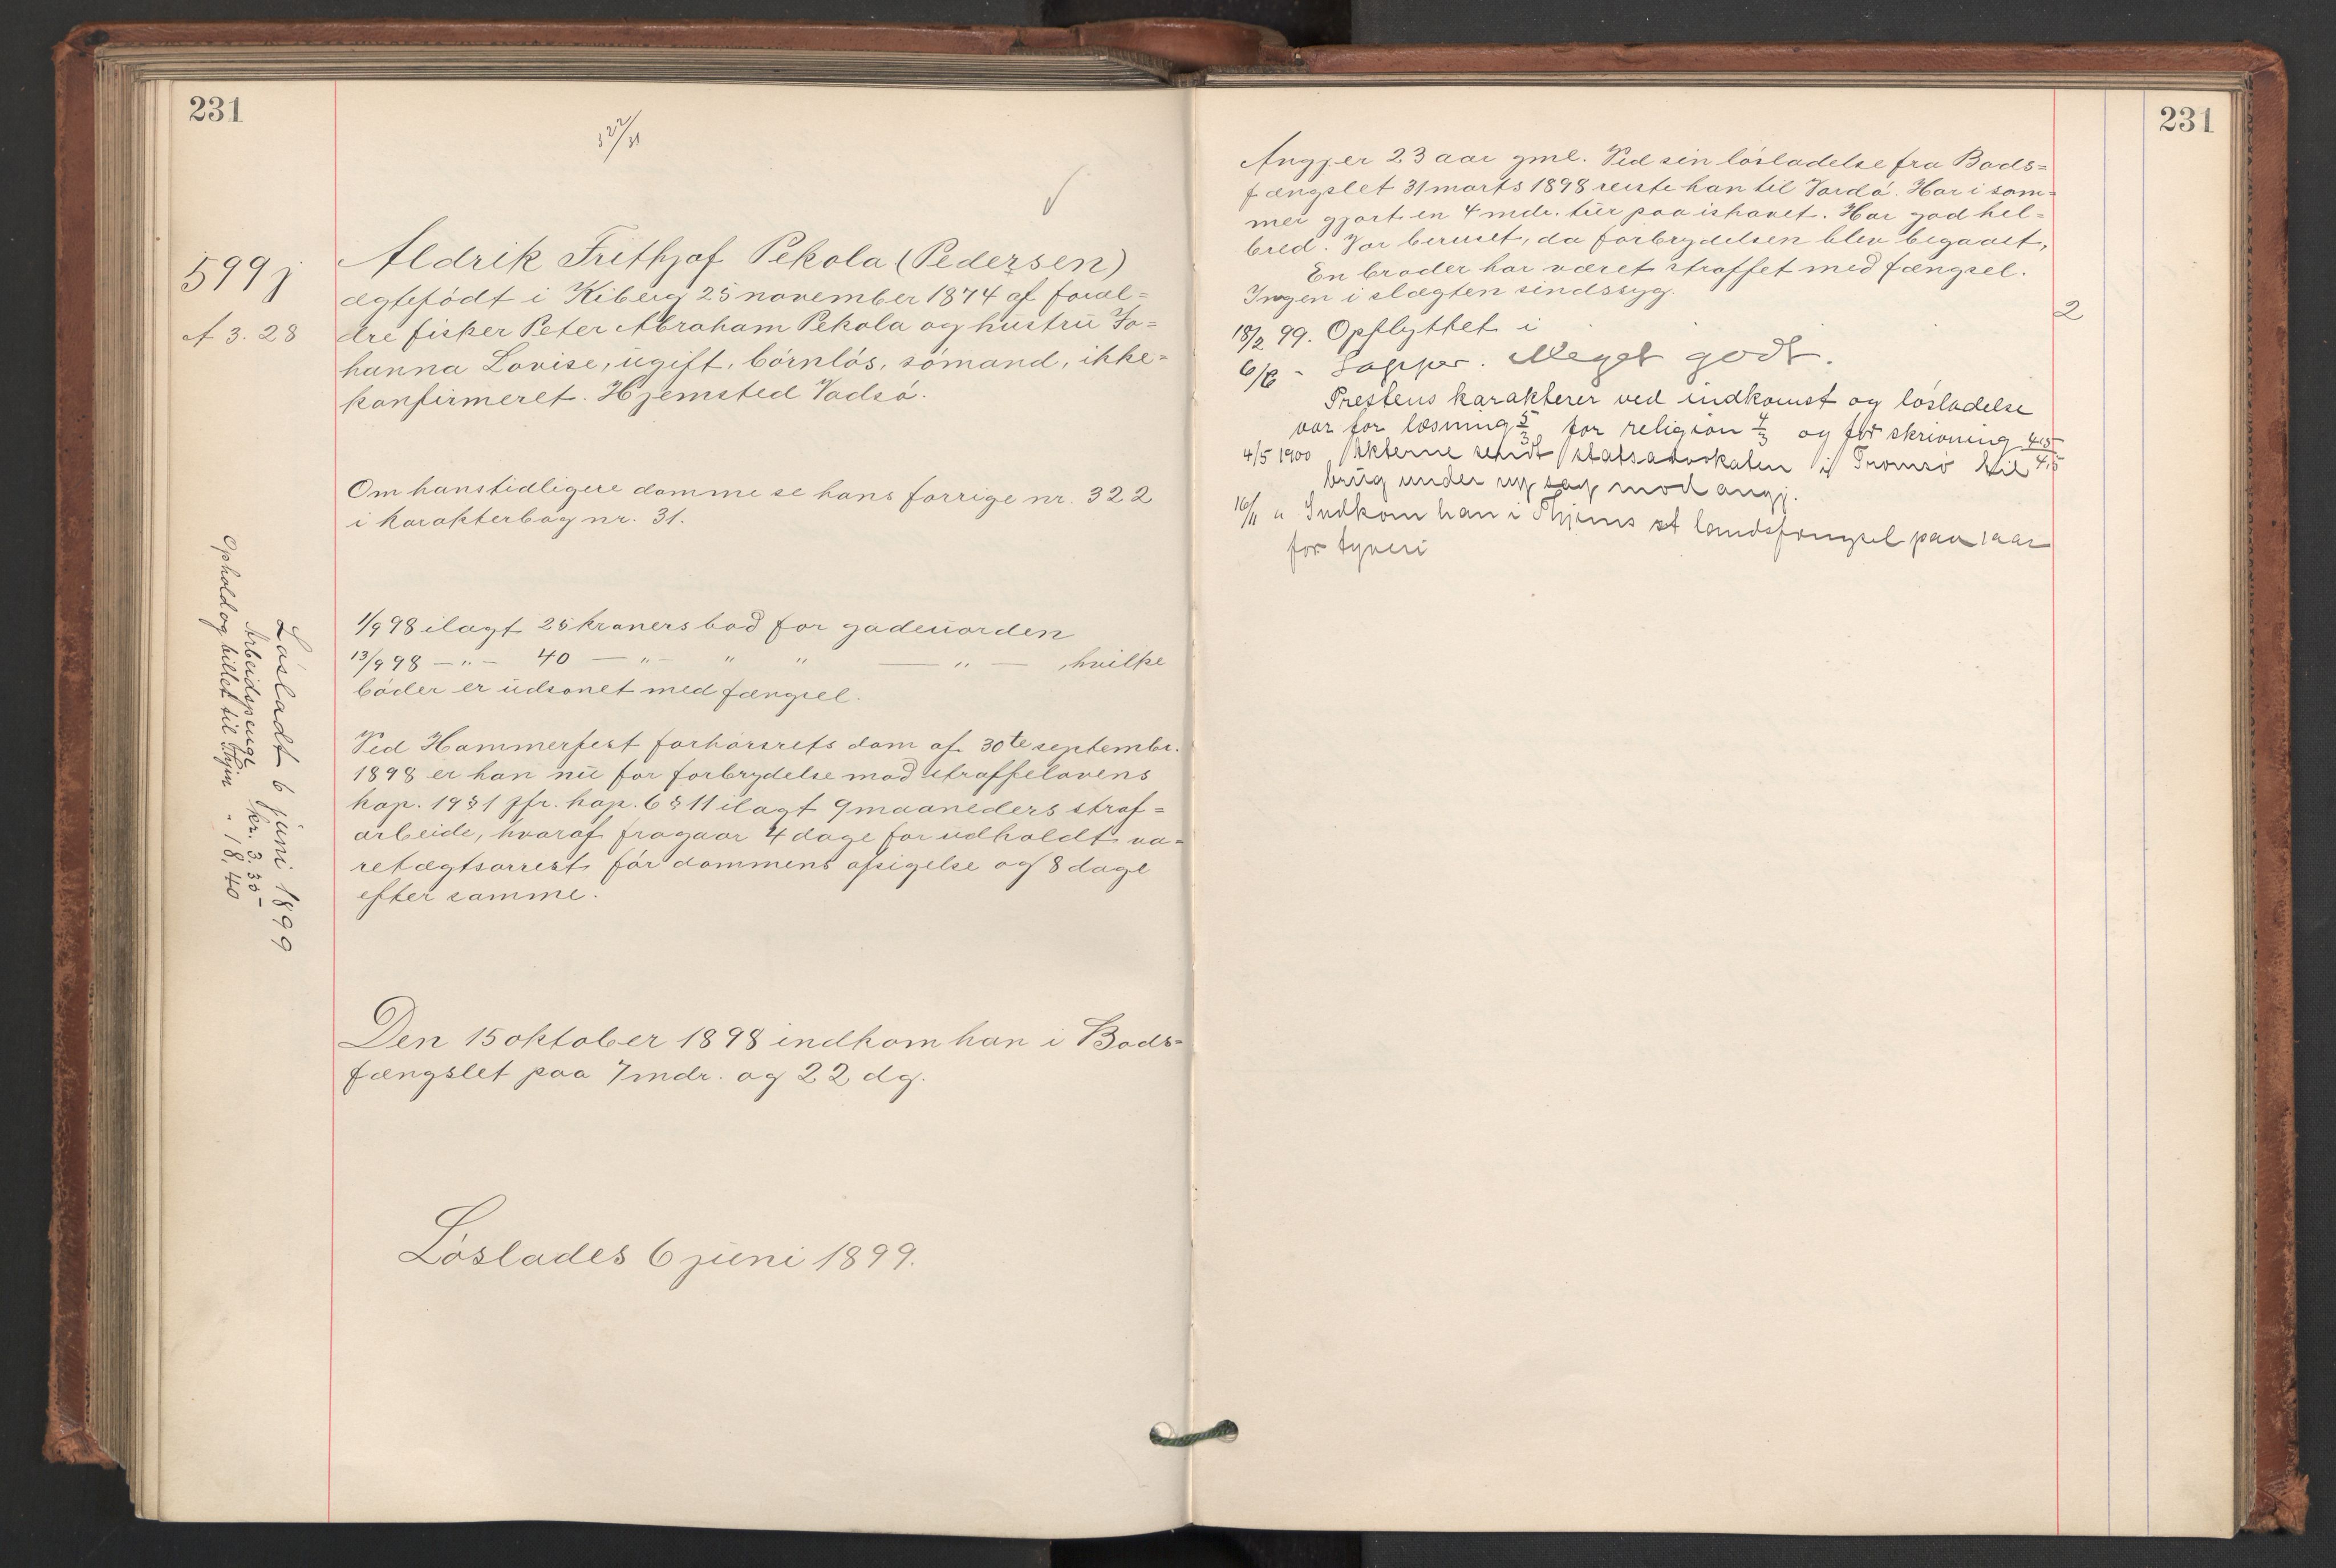 231
322/31
599 j
A 3. 28
Aldrik Frithjof Pekola (Pedersen)
ægtefödt i Kiberg 25 november 1874 af foræl=
dre fisker Peter Abraham Pekola og hustru Jo=
hanna Lovise, ugift, börnlös, sömand, ikke-
konfirmeret. Hjemsted Vadsö.
Om hans tidligere domme se hans forrige nr. 322
i karakterbog nr. 31.
1/9 98 ilagt 25 kroners bod for gadeuorden
13/9 98 — " — 40 — " — " " — " — , hvilke
böder er udsonet med fængsel.
Ved Hammerfest forhörsrets dom af 30te septembr.
1898 er han nu for forbrydelse mod straffelovens
kap. 19 § 1 jfr. kap. 6 § 11 ilagt 9 maaneders straf=
arbeide, hvoraf fragaar 4 dage for udholdt va=
retægtsarrest för dommens afsigelse og 8 dage
efter samme.
Den 15 oktober 1898 indkom han i Bods=
fængslet paa 7 mdr. og 22 dg.
Löslades 6 juni 1899.
Lösladt 6 juni 1899
Arbeidspenge kr. 3.35
Ophold og billet til Thjem " 18,40
231
Angjer 23 aar gml. Ved sin lösladelse fra Bods=
fængslet 31 marts 1898 reiste han til Vardö. Har i som=
mer gjort en 4 mdr. tur paa ishavet. Har god hel=
bred. Var beruset, da forbrydelsen blev begaaet,
En broder har været straffet med fængsel.
Ingen i slægten sindssyg.
2
18/2 99. Opflyttet i
6/6 - Meget godt.
Prestens karakterer ved indkomst og lösladelse
var for læsning 5/3 for religion 4/3 og for skrivning 4,5/4,5
4/5 1900 Akterne sendt statsadvokaten i Tromsö til
brug under ny sag mod angj.
16/11 " Indkom han i Thjems st landsfængsel paa 1 aar
for tyveri